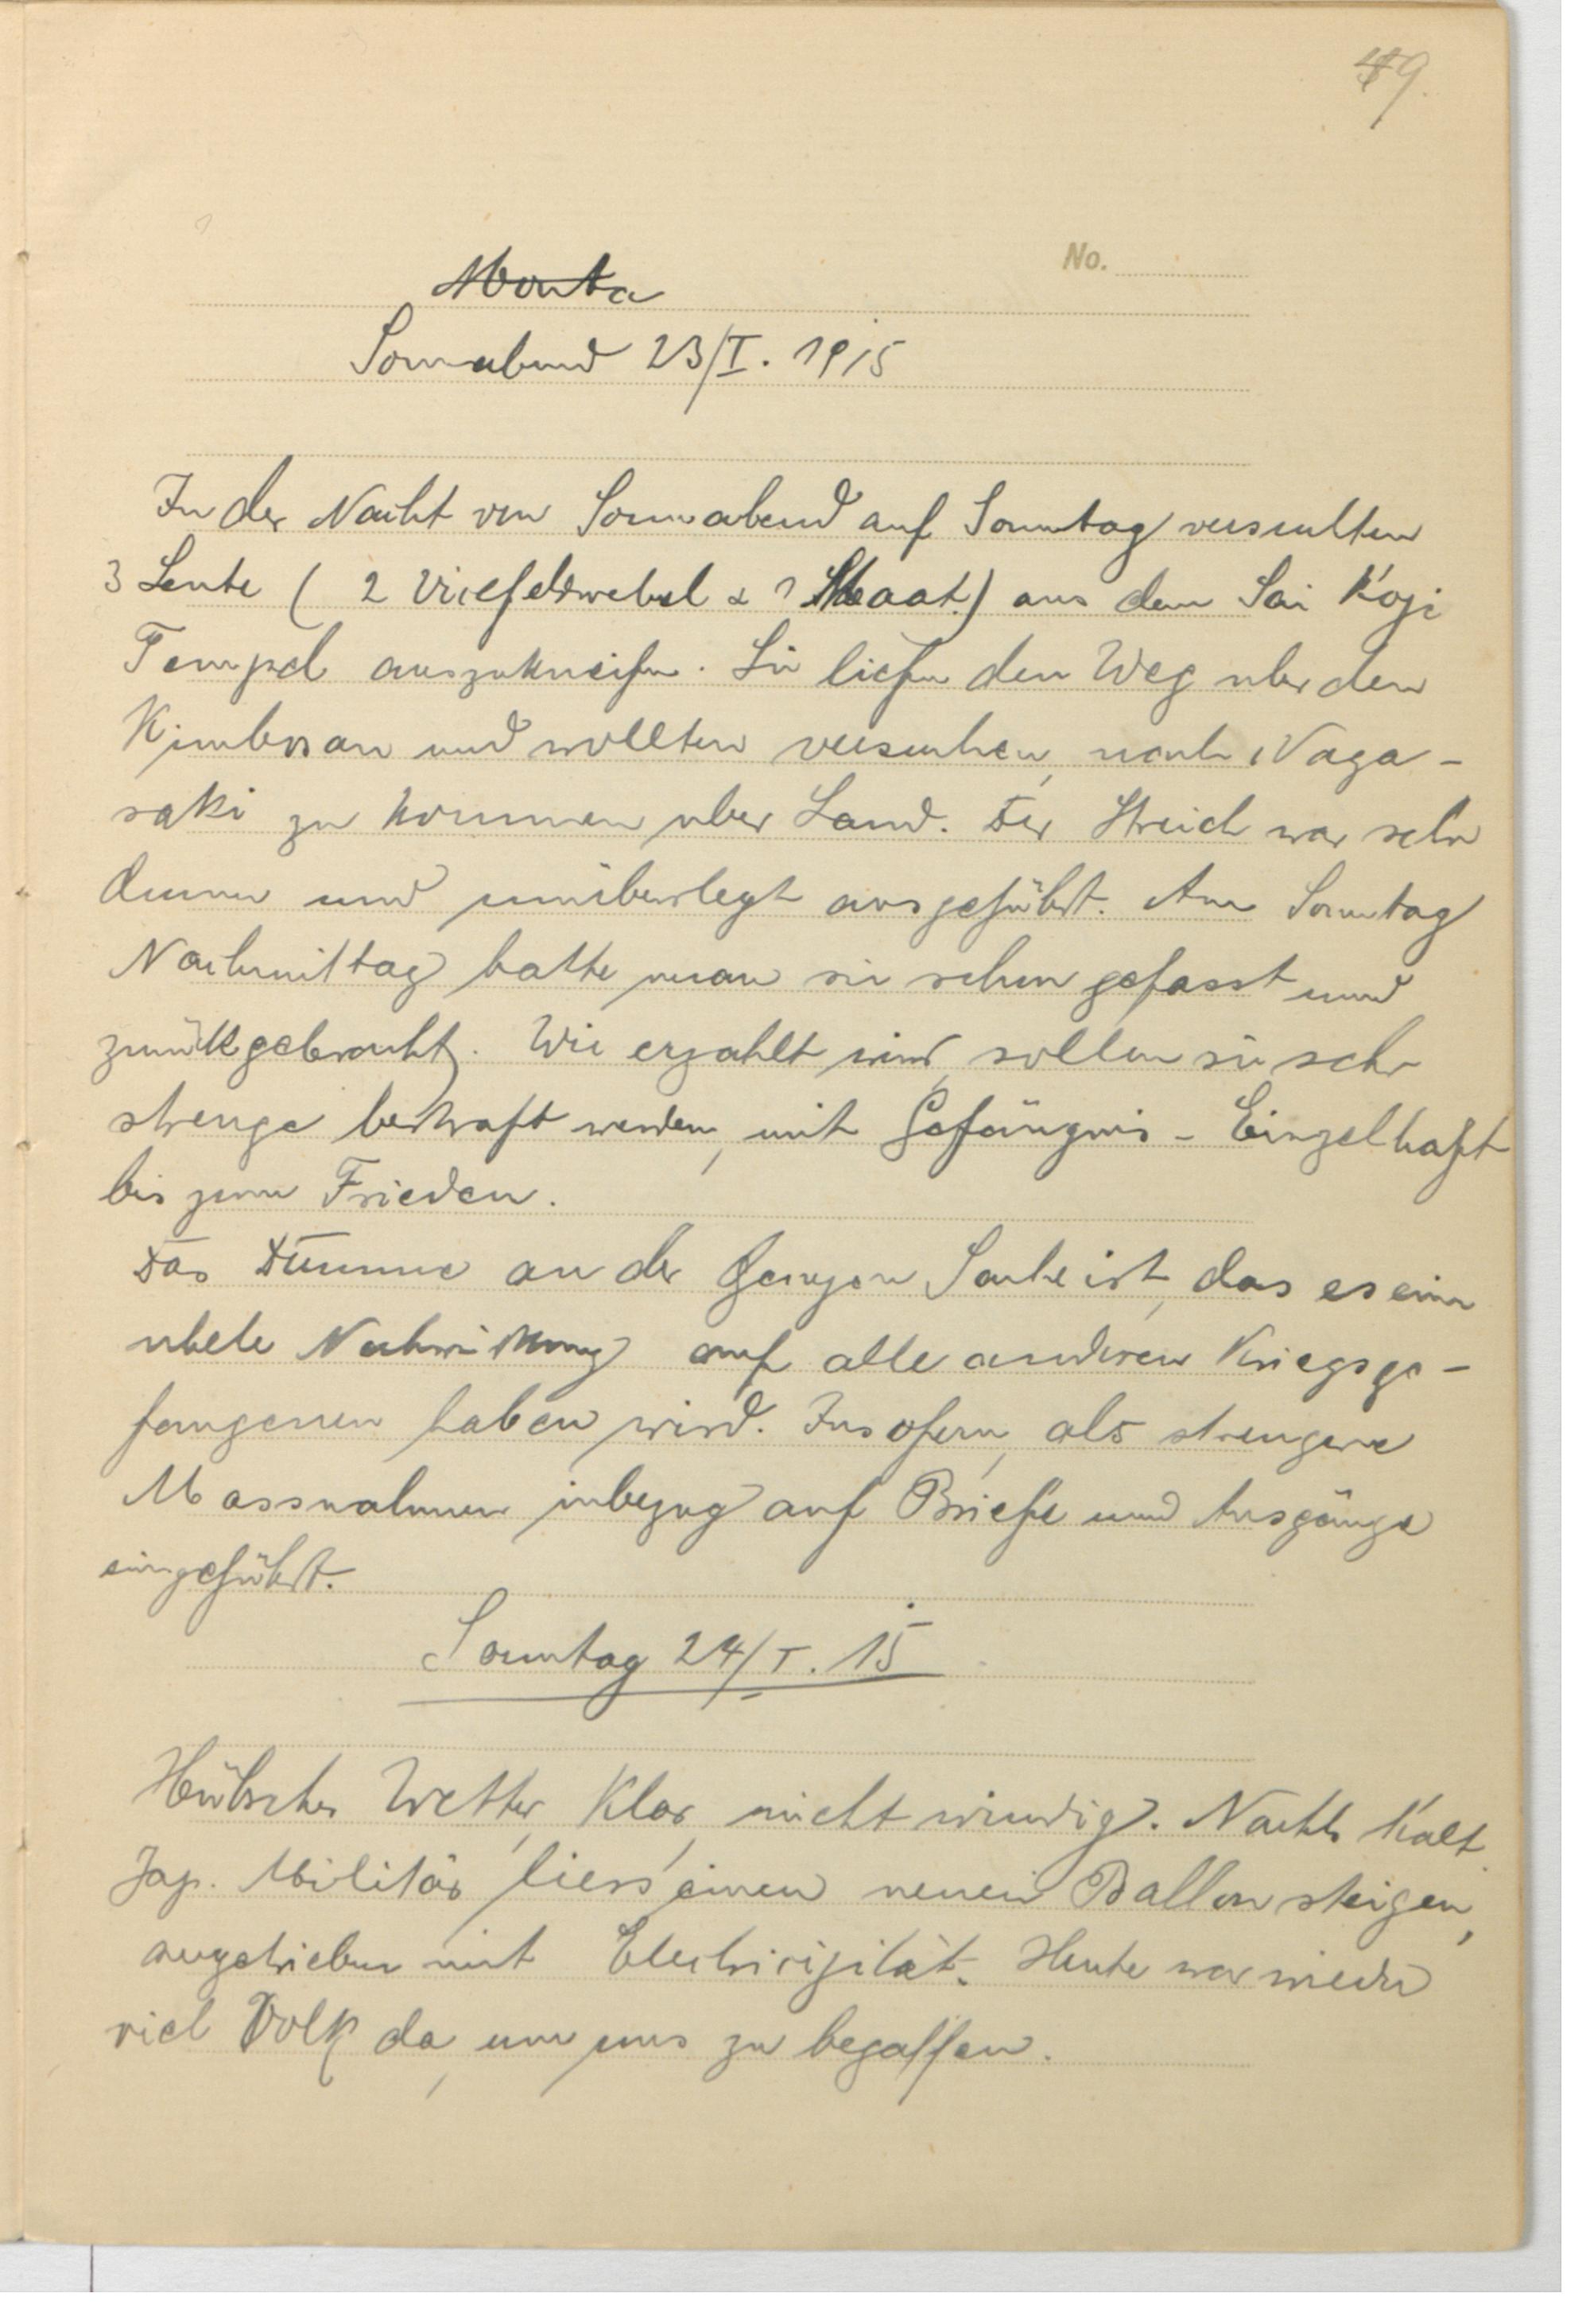 49.
No.
Monta
Sonnabend 23/I. 1915
In der Nacht von Sonnabend auf Sonntag versuchten
3 Leute ( 2 Vicefeldwebel & 1 Maat.) aus dem Sai Koji
Tempel auszukneifen. Sie liefen den Weg uber den
Kimbosan und wollten versuchen, nach Naga-
saki zu kommen uber Land. Der Streich war sehr
dumm und unüberlegt ausgeführt. Am Sonntag
Nachmittag hatte man sie schon gefasst und
zurückgebracht. Wie erzahlt wird, sollen sie sehr
strenge bestraft werden, mit Gefängnis - Einzelhaft
bis zum Frieden.
Das Dumme an der Ganzen Sache ist, das es eine
ubele Nachwirkung auf alle anderen Kriegsge-
fangenen haben wird. Insofern, als strengere
Massnahmen inbezug auf Briefe und Ausgänge
eingeführt.
Sonntag 24/I. 15
Hübsches Wetter, Klar, nicht windig. Nachts Kalt.
Jap. Militär liess einen neuen Ballon steigen,
angetrieben mit Electricizität. Heute war wieder
viel Volk da, um uns zu begaffen.